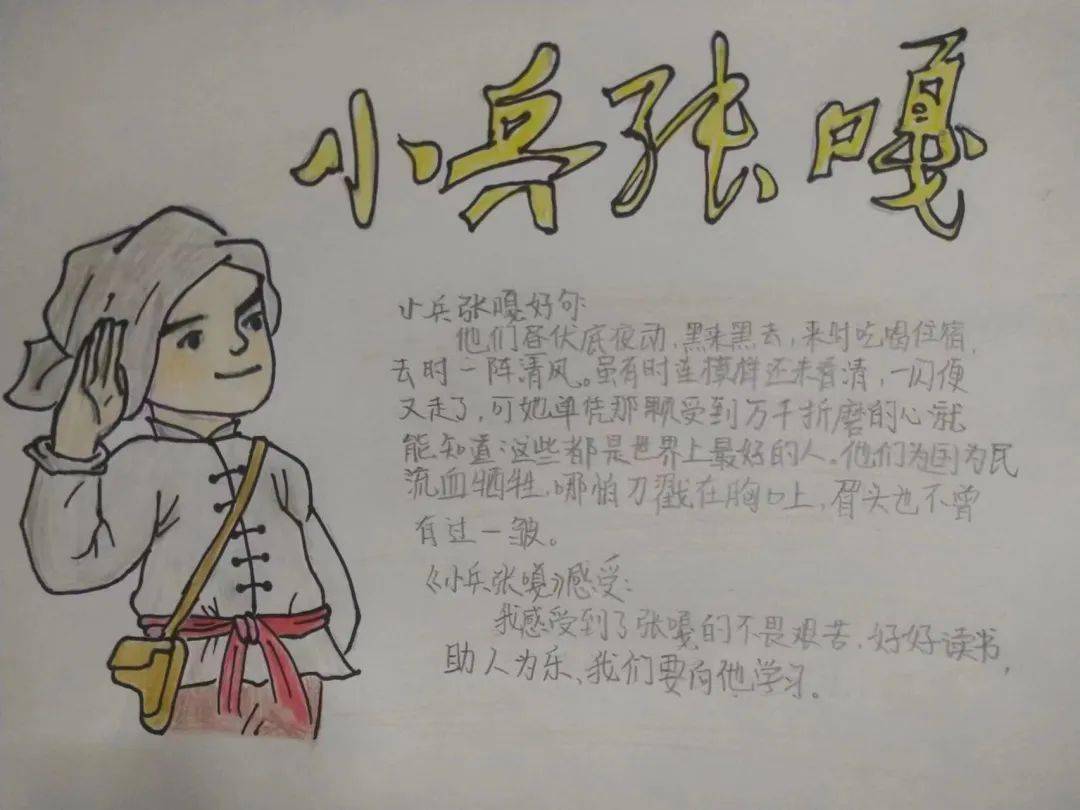 小兵张嘎
小兵张嘎好句:
他们昼伏底夜动,黑来黑去,来时吃喝住宿,
去时一阵清风。虽有时连模样还未看清,一闪便
又走了,可她单凭那颗受到万千折磨的心就
能知道:这些都是世界上最好的人。他们为国为民
流血牺牲,哪怕刀戳在胸口上,眉头也不曾
有过一皱。
《小兵张嘎》感受:
我感受到了张嘎的不畏艰苦、好好读书、
助人为乐、我们要向他学习。